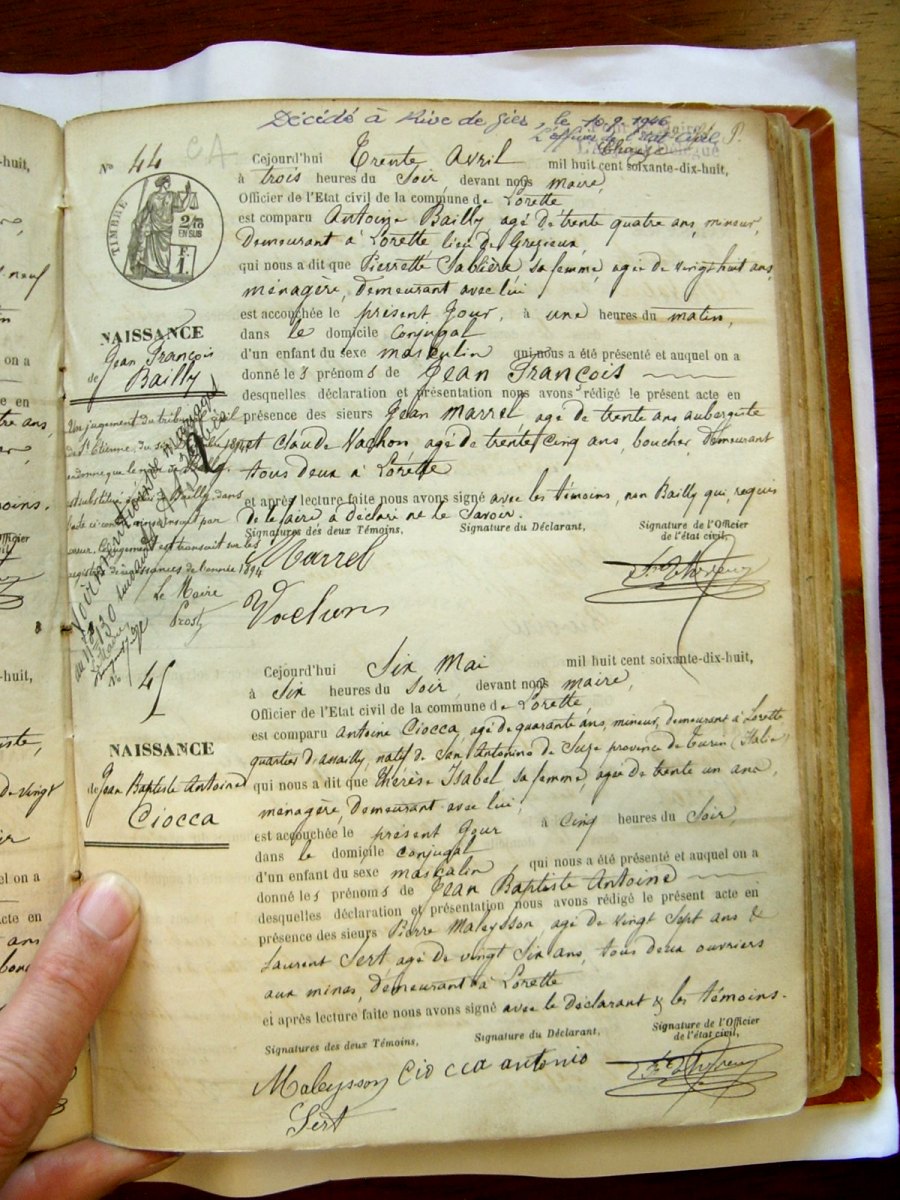 Décédé à Rive de Gier, le 10.9.1946
L'officier de l'état Civil
N° 44
CA
TIMBRE
2/10
EN SUS
F.
1.
Cejourd'hui Trente Avril mil huit cent soixante-dix-huit,
à trois heures du Soir, devant nous maire,
Officier de l'Etat civil de la commune de Lorette
est comparu Antoine Bailly agé de trente quatre ans, mineur,
demeurant à Lorette lieu de Grezieux,
qui nous a dit que Pierrette Sablière sa femme, agée de vingt huit ans
ménagère, demeurant avec lui
est accouchée le présent Jour, à une heures du matin,
dans le domicile conjugal
d'un enfant du sexe masculin qui nous a été présenté et auquel on a
donné les prénoms de Jean François
desquelles déclaration et présentation nous avons rédigé le présent acte en
présence des sieurs Jean Marrel agé de trente ans aubergiste
et Claude Vachon agé de trente cinq ans, boucher, demeurant
tous deux à Lorette
et après lecture faite nous avons signé avec les témoins, non Bailly qui requis
de le faire a déclaré ne le Savoir.
Signatures des deux Témoins, Signature du Déclarant, Signature de l'Officier
de l'état civil,
Marrel
Vachon
NAISSANCE
de Jean François
Bailly
Un jugement du tribunal civil
de St Etienne, du
ordonne que le nom de
substitué à Bailly, dans
l'acte ci contre
registres de naissances de l'année 1894
Le Maire
Prosty
Voir mention de mariage
au N° 130
45
Cejourd'hui Six Mai mil huit cent soixante-dix-huit,
à Six heures du Soir, devant nous maire,
Officier de l'Etat civil de la commune de Lorette
est comparu Antoine Ciocca, agé de quarante ans, mineur, demeurant à Lorette
quartier d'assailly, natif de San Antonino de Suze province de turin (Italie)
qui nous a dit que thérèse Isabel sa femme, agée de trente un ans,
ménagère, demeurant avec lui,
est accouchée le présent Jour à Cinq heures du Soir,
dans le domicile conjugal
d'un enfant du sexe masculin qui nous a été présenté et auquel on a
donné les prénoms de Jean Baptiste Antoine
desquelles déclaration et présentation nous avons rédigé le présent acte en
présence des sieurs Pierre Maleysson, agé de vingt Sept ans &
Laurent Sert, agé de vingt Six ans, tous deux ouvriers
aux mines, demeurant à Lorette
et après lecture faite nous avons signé avec le déclarant & les témoins.
Signatures des deux Témoins, Signature du Déclarant, Signature de l'Officier
de l'état civil,
Maleysson Ciocca antonio
Sert
NAISSANCE
de Jean Baptiste Antoine
Ciocca